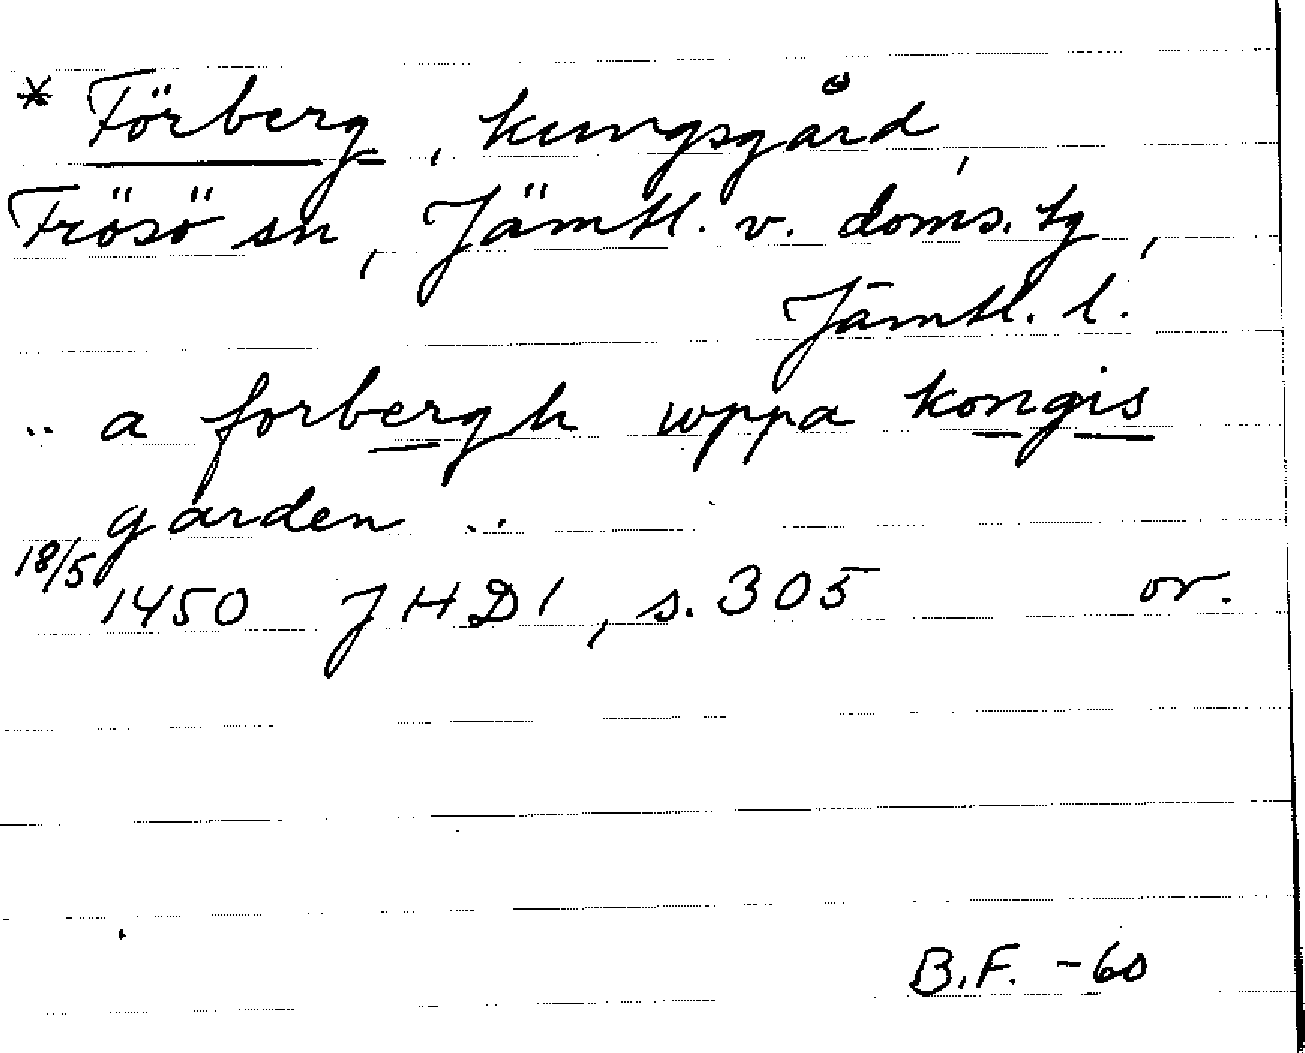 * Förberg, kungsgård,
Frösö sn, Jämtl. v. doms. tg,
Jämtl. l.
.. a forbergh wppa kongis
garden ..
18/5 1450 JHD 1, s. 305 or.
B.F. -60